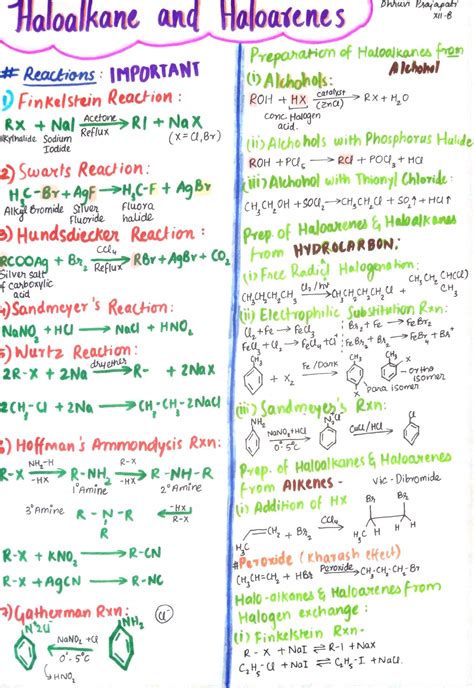 Haloalkane and Haloarenes
Dhruvi Prajapati
XII-B
# Reactions : IMPORTANT
1) Finkelstein Reaction :
RX + NaI Acetone → Reflux RI + NaX
Alkylhalide Sodium Iodide (X = Cl, Br)
2) Swarts Reaction :
H3C-Br + AgF → H3C-F + AgBr
Alkyl Bromide Silver Fluoride Fluora halide
3) Hundsdiecker Reaction :
RCOOAg + Br2 CCl4 → Reflux RBr + AgBr + CO2
Silver salt of carboxylic acid
4) Sandmeyer's Reaction :
NaNO2 + HCl → NaCl + HNO2
5) Wurtz Reaction :
2R-X + 2Na dryether → R- + 2NaX
2CH3-Cl + 2Na → CH3-CH3-2NaCl
6) Hoffman's Ammondysis Rxn:
R-X NH2-H → -HX R-NH2 R-X → -HX R-NH-R
1° Amine 2° Amine
3° Amine R-N-R ← -HX R-X
R
R-X + KNO2 → R-CN
R-X + AgCN → R-NC
7) Gatherman Rxn: Cl
N2Cl NaNO2 + Cl 0°-5°C NH2
HNO2
Preparation of Haloalkanes from
Alcohol
(i) Alchohols :
ROH + HX catalyst → (ZnCl) RX + H2O
Conc. Halogen acid.
(ii) Alchohols with Phosphorus Halide
ROH + PCl5 → RCl + POCl3 + HCl
(iii) Alchohol with Thionyl Chloride :
CH3CH2OH + SOCl2 → CH3CH2Cl + SO2↑ + HCl↑
Prep. of Haloarenes & Haloalkanes
from HYDROCARBON:
(i) Free Radicl Halogenation :
CH3CH2CH2CH3 Cl2/hν → CH3CH2CH2CH2Cl + CH3CH2CHClCH3
(ii) Electrophilic Substitution Rxn:
Cl2 + Fe → FeCl3 Br2 + Fe → FeBr2
FeCl3 + Cl2 → FeCl4 + Cl+ FeBr3 + Br2 → FeBr4- + Br+
CH3 + X2 Fe/Dark → CH3 X + CH3 X
ortho isomer
para isomer
(iii) Sandmeyer's Rxn:
NH2 NaNO2+HCl → 0°-5°C N2Cl CuCl/HCl → Cl
Prep. of Haloalkanes & Haloarenes
from Alkenes - vic-Dibromide
(i) Addition of HX Br Br
H3C CH2 + Br2 CCl4 → H3C H H
# Peroxide (Kharash effect)
CH3CH=CH2 + HBr Peroxide → CH3-CH2-CH2-Br
Halo-alkanes & Haloarenes from
Halogen exchange :
(i) Finkelstein Rxn-
R-X + NaI ⇌ R-I + NaX
C2H5-Cl + NaI ⇌ C2H5-I + NaCl.